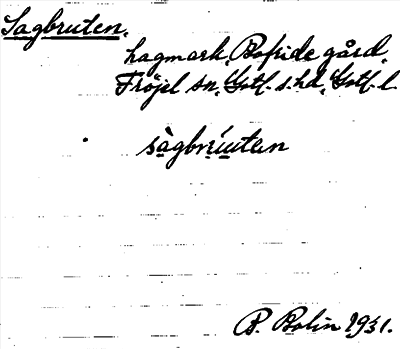 Sagbruten.
hagmark, Bofride gård,
Fröjel sn, Gotl. s. hd, Gotl. l.
sàgbru̍utεn
B. Bolin 1931.